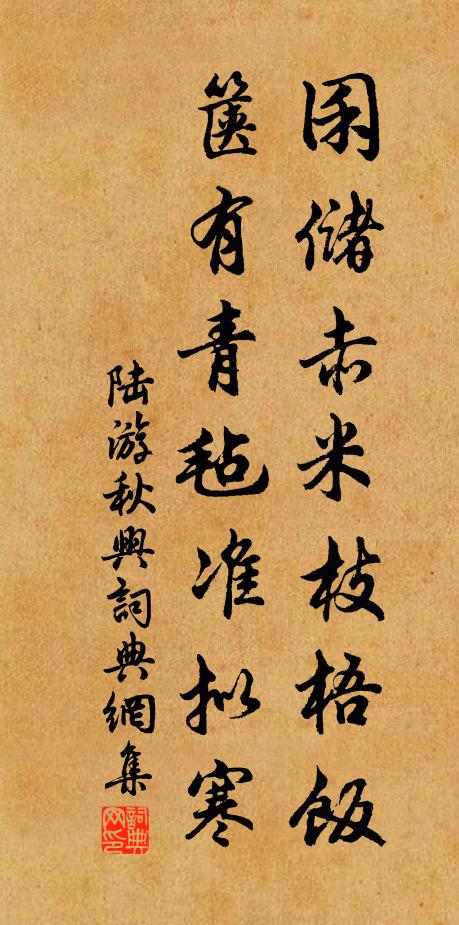 囷儲赤米枝梧飯
篋有青毡准拟寒
陸游秋興詞典網集
詞典网印